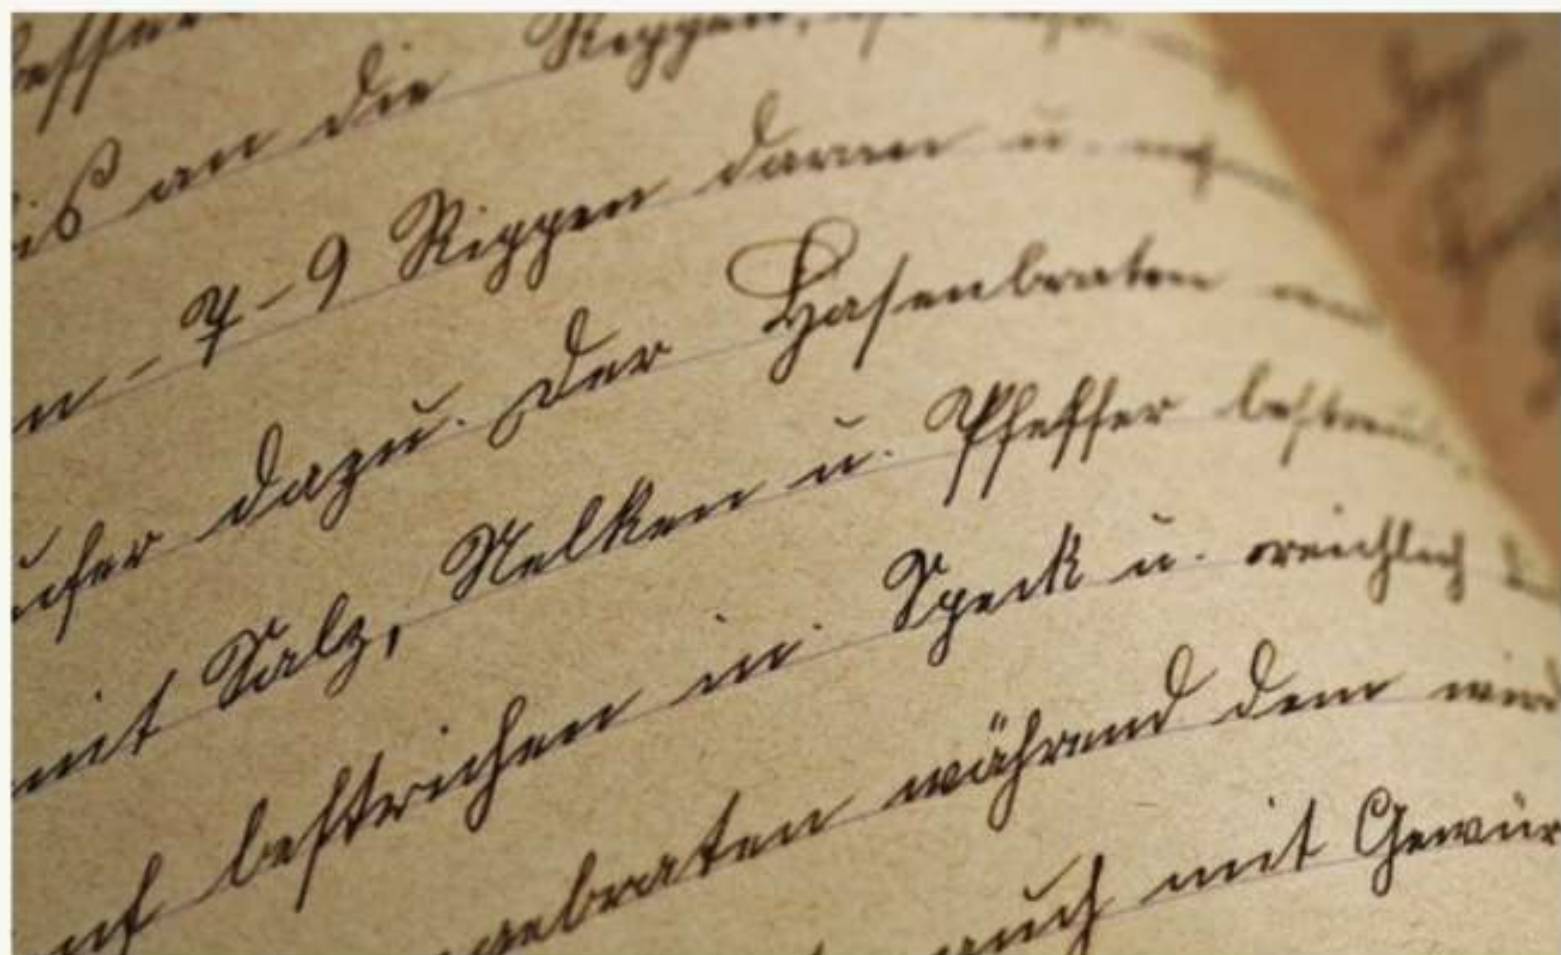 bis an die Rippen,
7-9 Rippen daran u.
dazu. Der Hasenbraten
mit Salz, Nelken u. Pfeffer
bestrichen in Speck u. reichlich
gebraten während dem wird
auch mit Gewür